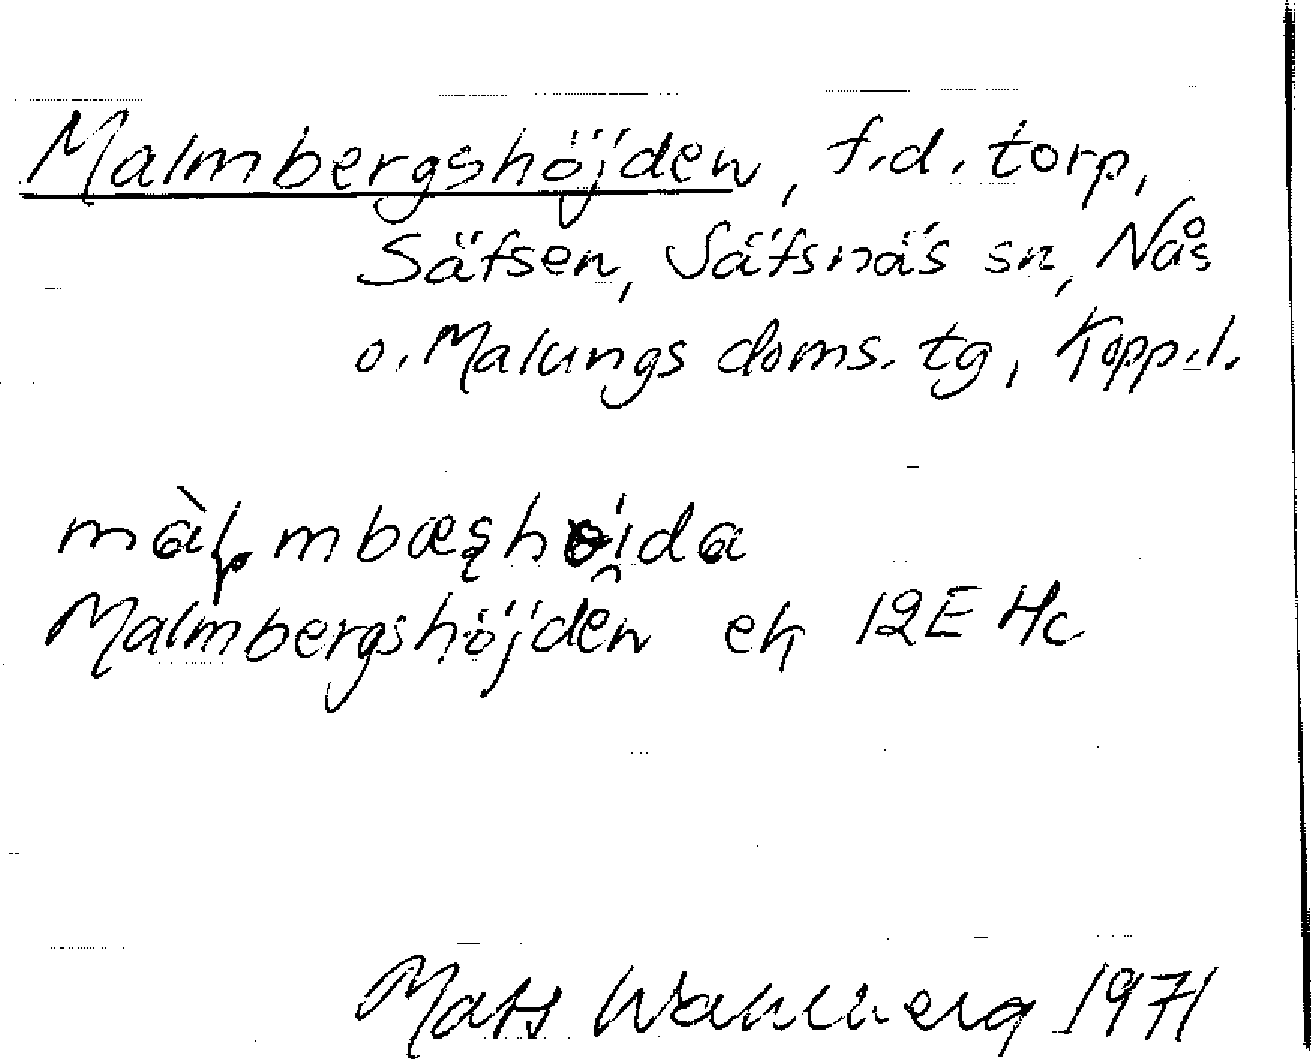 Malmbergshöjden, f.d. torp,
Säfsen, Säfsnäs sn, Nås
o. Malungs doms. tg, Kopp.l.
Malmbergshöjden ek 12E Hc
Mats Wahlberg 1971